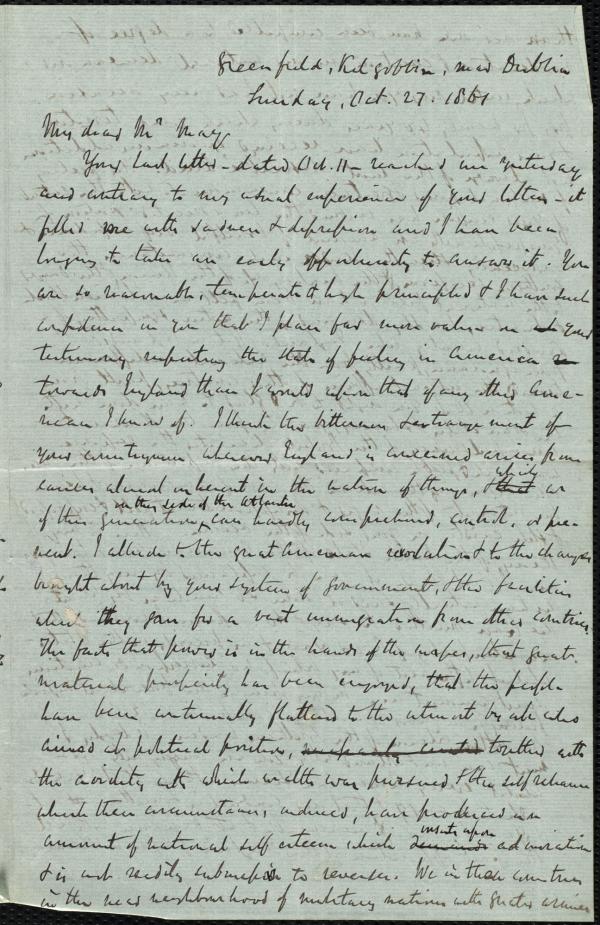 Greenfield, Kilgobbin, near Dublin
Sunday, Oct. 27. 1861
My dear Mr May,
Your last letter - dated Oct. 11 - reached me yesterday
and contrary to my usual experience of your letters - it
filled me with sadness & depression and I have been
longing to take an early opportunity to answer it. You
are so reasonable, temperate & high principled & I have such
confidence in you that I place far more value on your
testimony respecting the state of feeling in America
towards England than I would upon that of any other Ame-
rican I know of. I think the bitterness & estrangement of
your countrymen wherever England is concerned arises from
causes almost inherent in the nature of things, & which we
of this generation on this side of the Atlantic can hardly comprehend, control, or pre-
vent. I allude to the great American revolution & to the changes
brought about by your system of government, & the facilities
which they gave for a vast immigration from other countries.
The facts that power is in the hands of the masses, that great
material prosperity has been enjoyed, that the people
have been continually flattered to the utmost by all who
aimed at political position, together with
the avidity with which wealth was pursued & the self reliance
which these circumstances induced, have produced an
amount of national self esteem which insists upon admiration
& is not readily submissive to reverses. We in these countries
in the near neighbourhood of military nations with greater armies